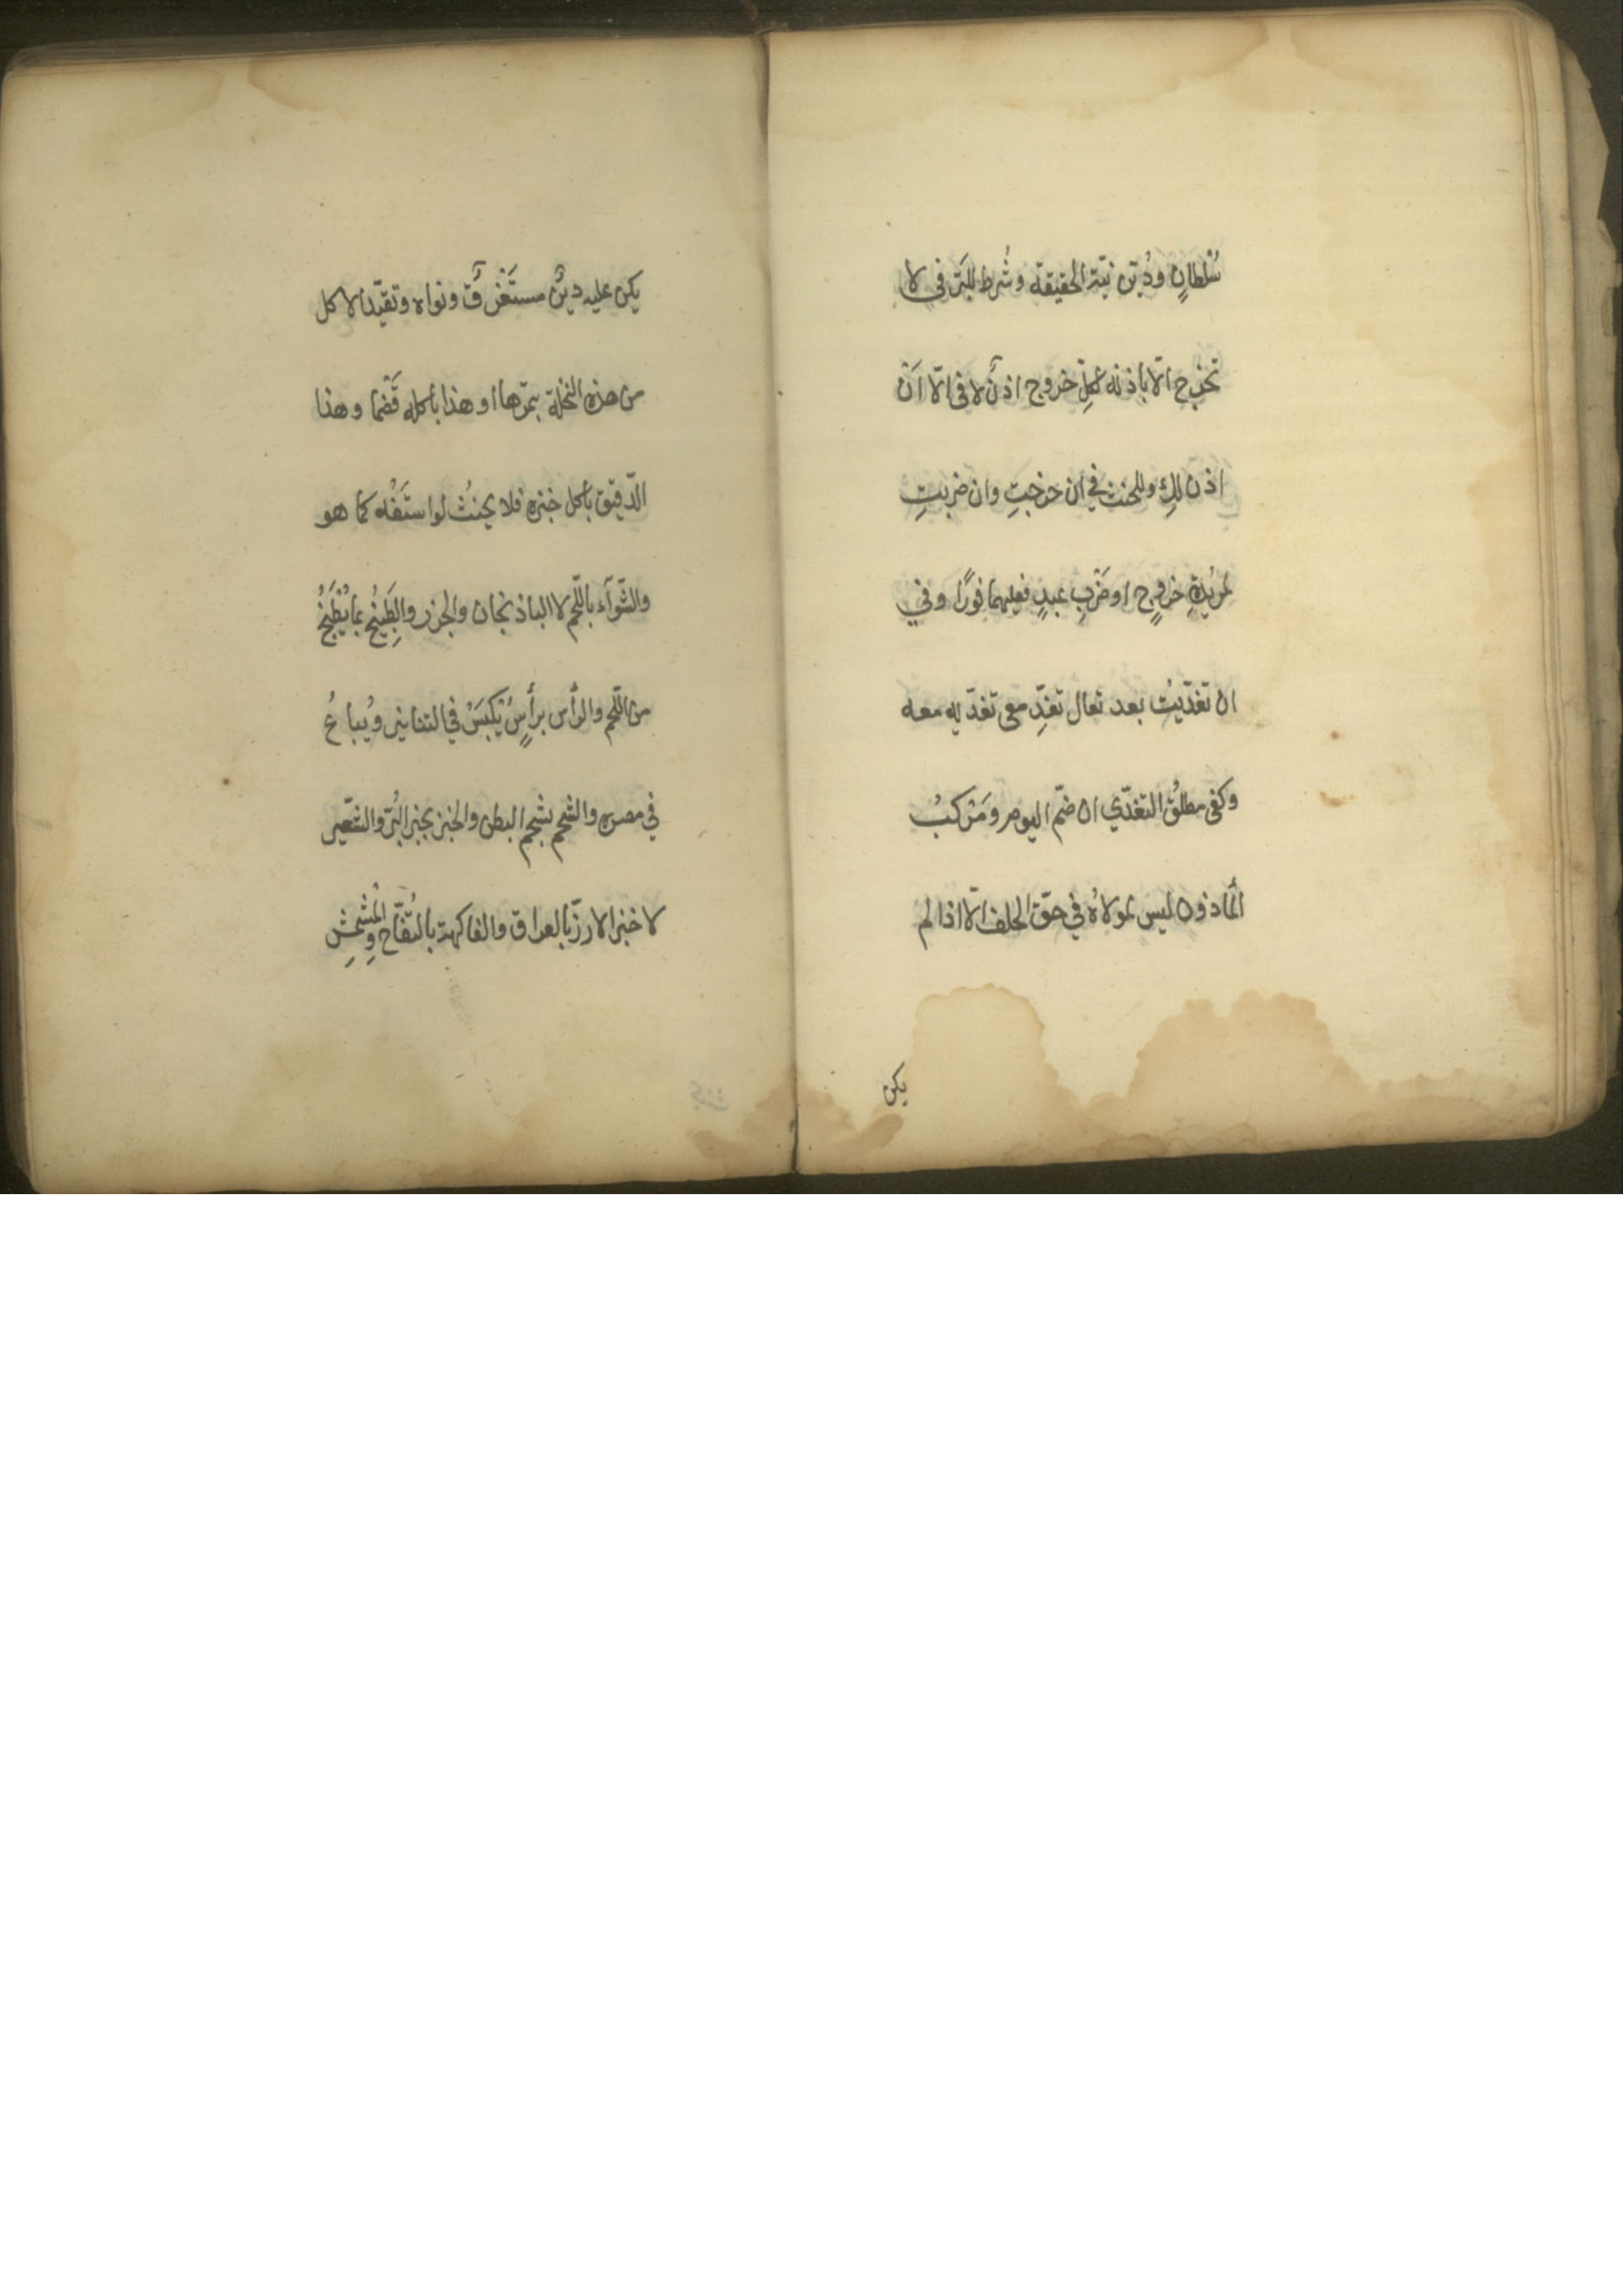 سُلْطانٍ ودُيّن نيّة الحقيقة وشُرط للبَرّ في لا
تخرج الّا باذنه لكلِّ خروج اذنٌ لا في الّا اَنْ
اذن لكِ وللحنث في ان خرجتِ وان ضربتِ
لمريدة خروجٍ او ضَرْبِ عبدٍ فعلهما فورًا وفي
ان تغدّيتُ بعد تعال تغدِّ معي تغدّيه معه
وكفى مطلقُ التغدّي ان ضمّ اليوم ومَرْكبُ
المأذون ليس لمولاهُ في حقّ الحلف الّا اذا لم
يكن
يكن عليه دينٌ مستَغْرقٌ ونواه وتقيّد الاكل
من هذه النخلة بثمرها او هذا باكله قَضْما وهذا
الدّقيق باكل خبزه فلا يحنثُ لو استَفّه كما هو
والشّوآء باللّحم لا الباذنجان والجزر والطَبِيْخُ بما يُطْبَخُ
من اللّحم والرأس برأسٍ يُكْبَسُ في التنانير ويُباعُ
في مصره والشحم بشحم البطن والخبز بخبز البُرّ والشّعير
لا خبز الارزّ بالعراق والفاكهة بالتُفّاح والْمِشْمِشِ